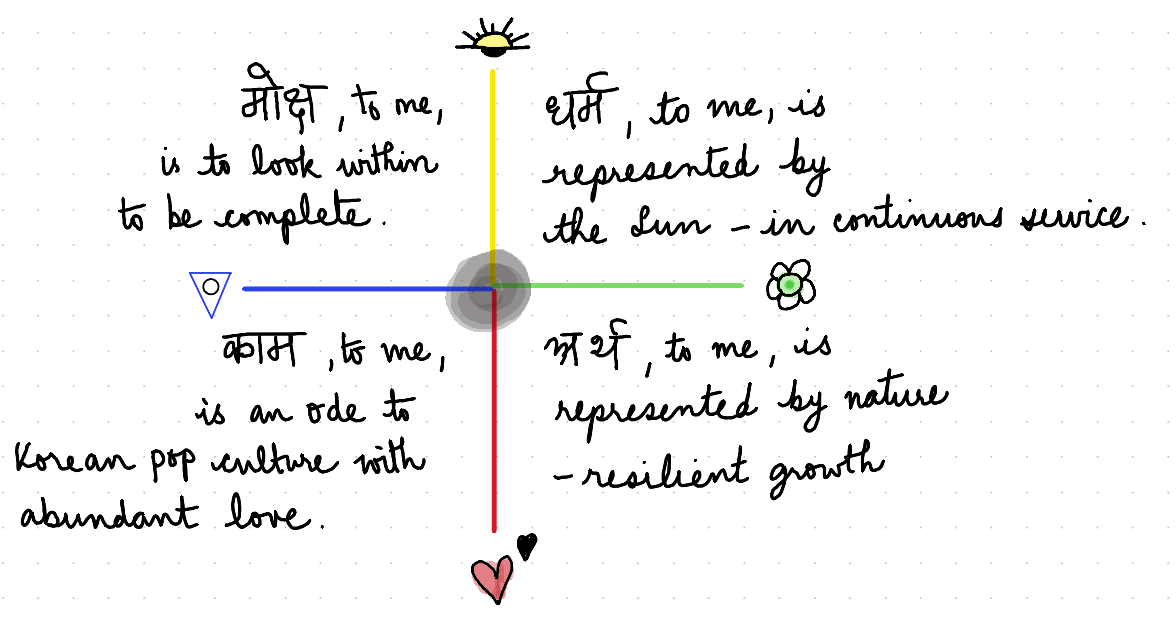 मोक्ष, to me,
is to look within
to be complete.
धर्म, to me, is
represented by
the Sun - in continuous service.
काम, to me,
is an ode to
Korean pop culture with
abundant love.
अर्थ, to me, is
represented by nature
- resilient growth